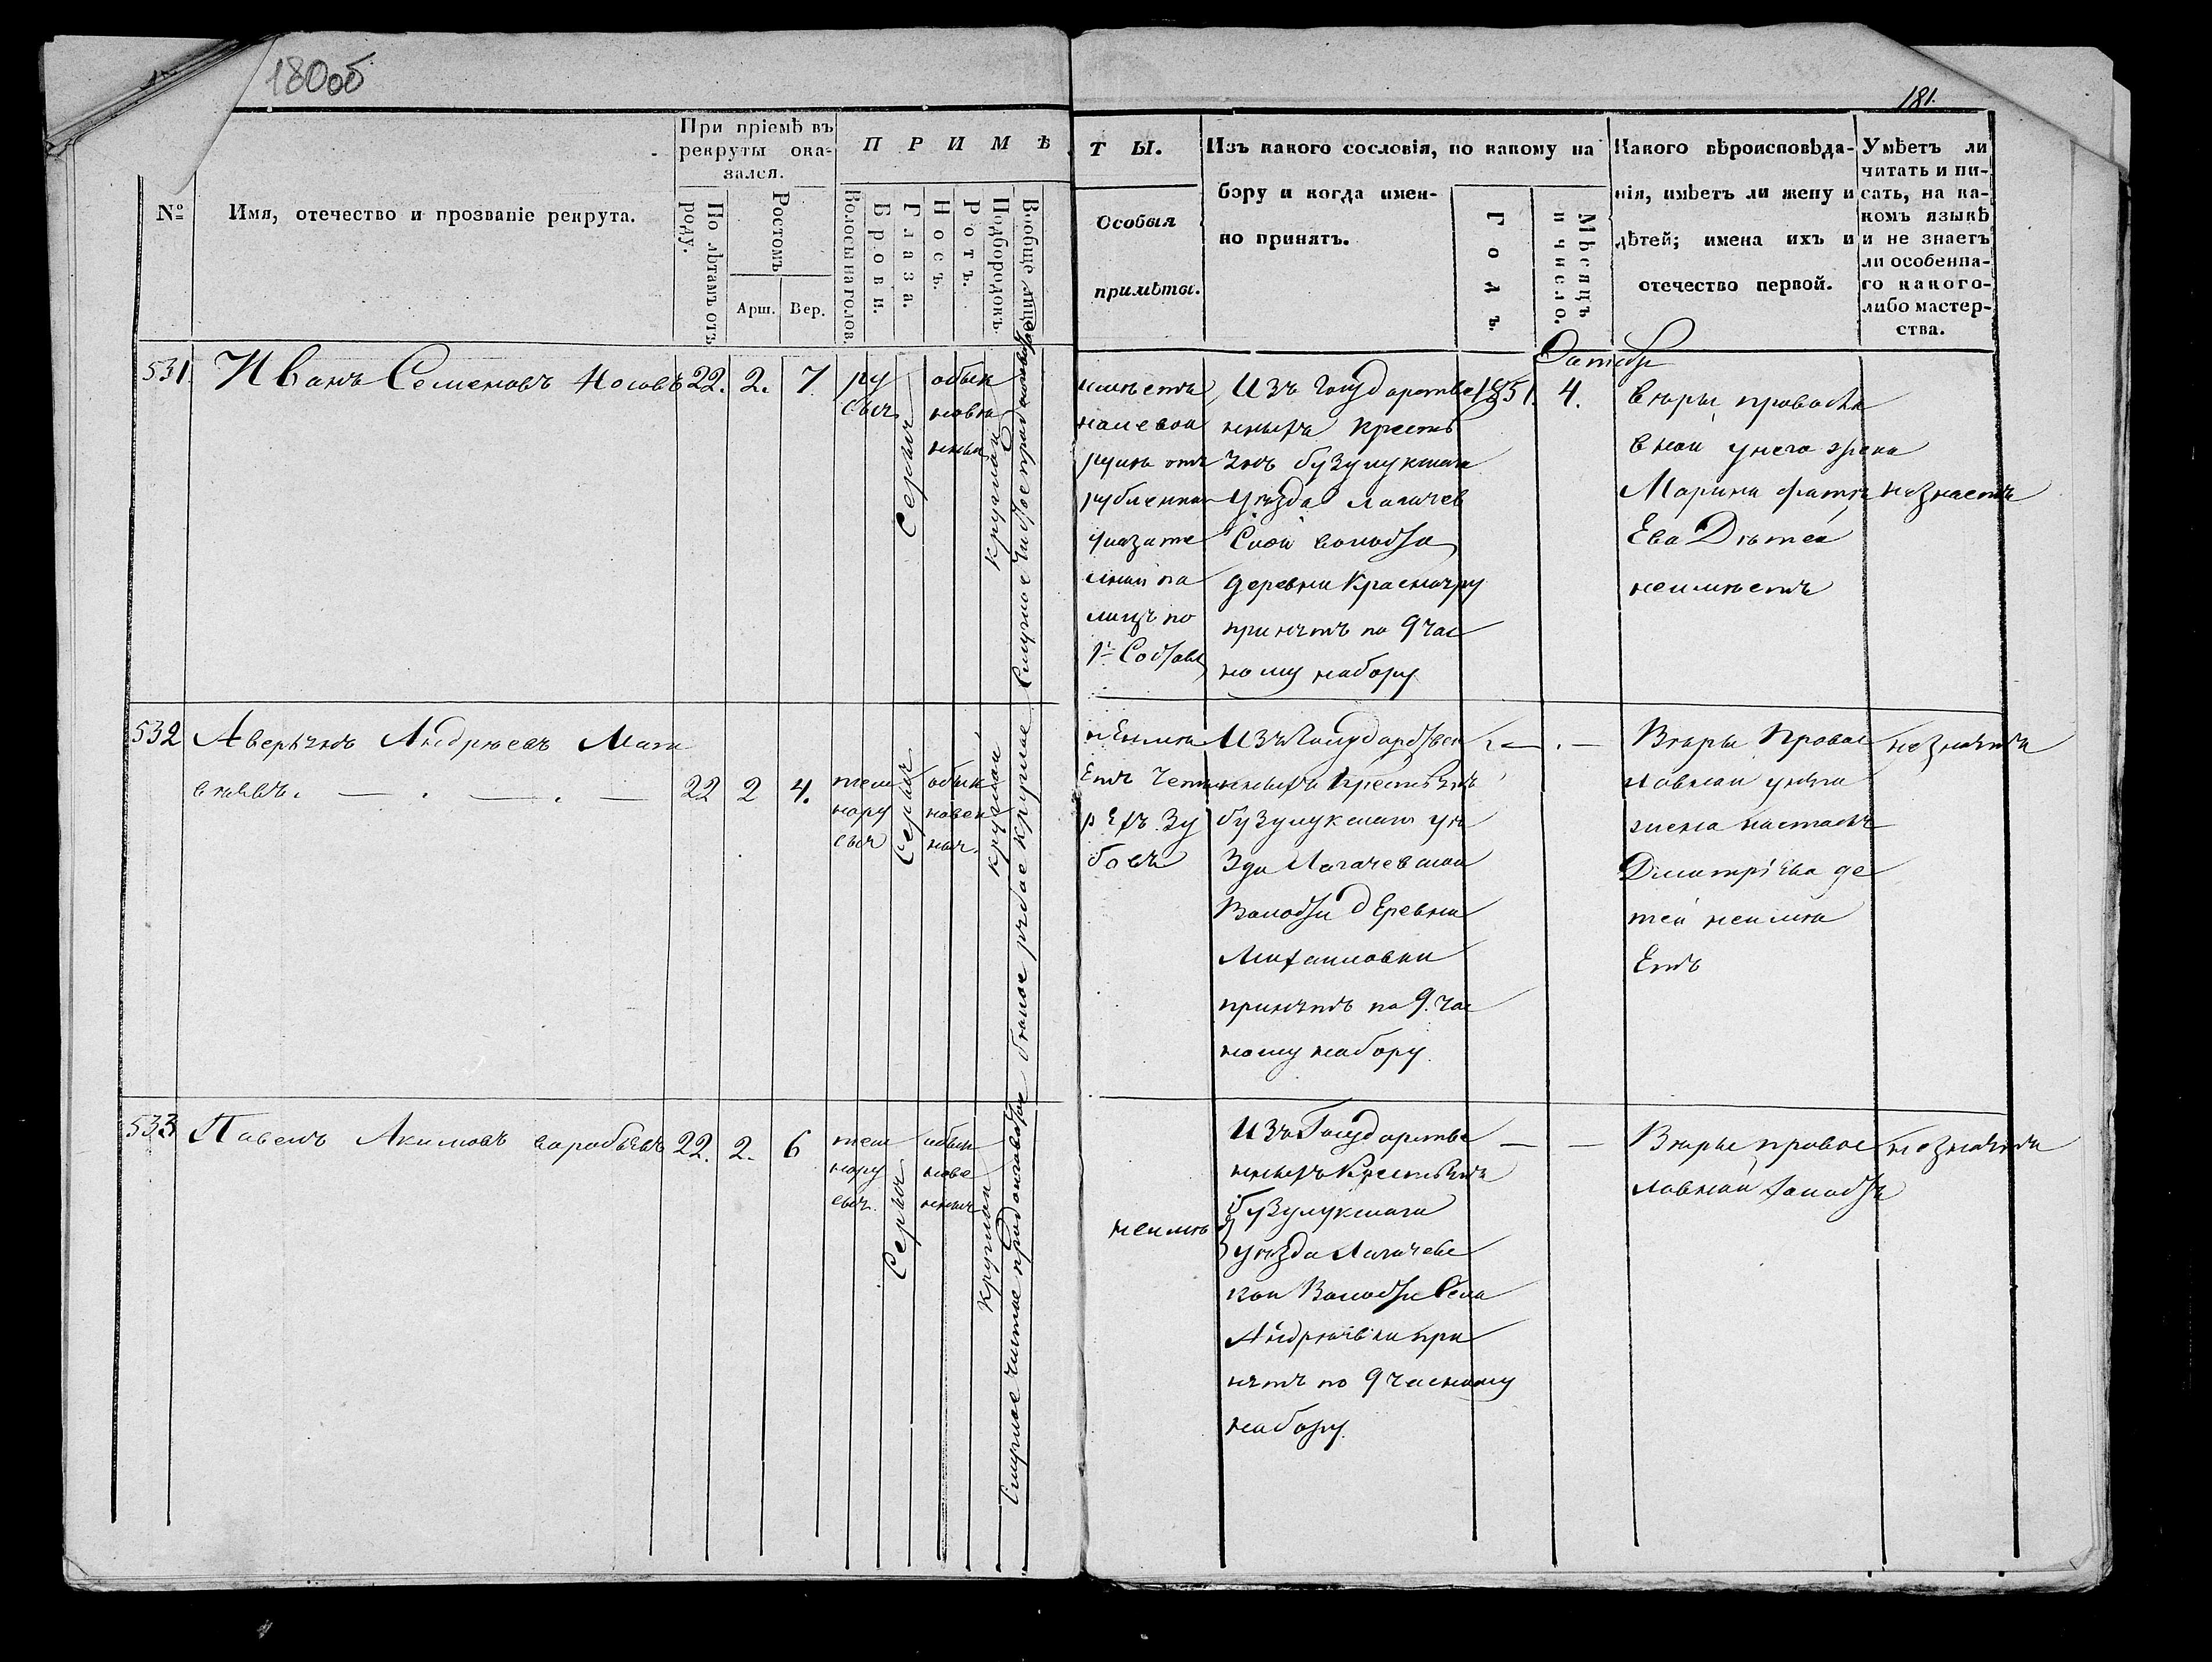 180об
181.
При пріемѣ въ
рекруты ока-
зался.
П Р И М Ѣ
№
Имя, отечество и прозваніе рекрута.
По лѣтамъ отъ
роду.
Ростомъ
Арш.
Вер.
Волосы на голов.
Брови.
Глаза.
Носъ.
Ротъ.
Подбородокъ.
Вообще лице
Т Ы.
Особыя
примѣты.
Изъ какого сословія, по какому на
бору и когда имен-
но принятъ.
Годъ.
Мѣсяцъ
и число.
Какого вѣроисповѣда-
нія, имѣетъ ли жену и
дѣтей; имена ихъ и
отечество первой.
Умѣетъ ли
читать и пи-
сать, на ка-
комъ языкѣ
и не знаетъ
ли особенна-
го какого-
либо мастер-
ства.
531.
Иванъ Семеновъ Носовъ
22.
2.
7
ру
сыя
Серыя
обык
новѣ
нныя
круглой
имѣетъ
налевой
рукѣ отъ
рубленна
указате
лной па
лицъ по
1й Составъ
Изъ Государстве
нныхъ Кресть
янъ бузулукскаго
уѣзда логачев
ской волости
деревни Краснояру
принятъ по 9 час
ному набору
1851.
Октября
4.
вѣры провосла
вной унего жена
Марина Фатѣ
Ева Дѣтей
неимѣетъ
незнаетъ
532
Аверьянъ Андрѣевъ Мат
вѣевъ. — . — . —
22
2
4.
тем
нору
сыя
Серыя
обык
новен
ныя.
круглой
белое рябое круглое
нЕимѣ
Етъ четы
рЕхъ зу
бовъ
Изъ Государствен
нныхъ Крестьянъ
бузулукскаго уѣ
зда Логачевской
Волости дЕревни
Михаиловки
принятъ по 9. час
ному набору.
— . —
Вѣры Провос
лавной унѣго
жена настасья
Дмитрiева де
тей неимѣ
Етъ
незнаетъ
533
Павелъ Акимовъ воробьевъ
22.
2.
6
тем
нору
сыя.
Серыя
обык
нове
нныя
круглой
Смуглое чистое продолговатое
неимѣ
Изъ Государстве
нныхъ Крестьянъ
бузулукскаго
уѣзда Логачевс
кой Волости Села
Андрѣевки при
нятъ по 9 часному
набору.
— —
Вѣры провос
лавной холостъ
незнаетъ